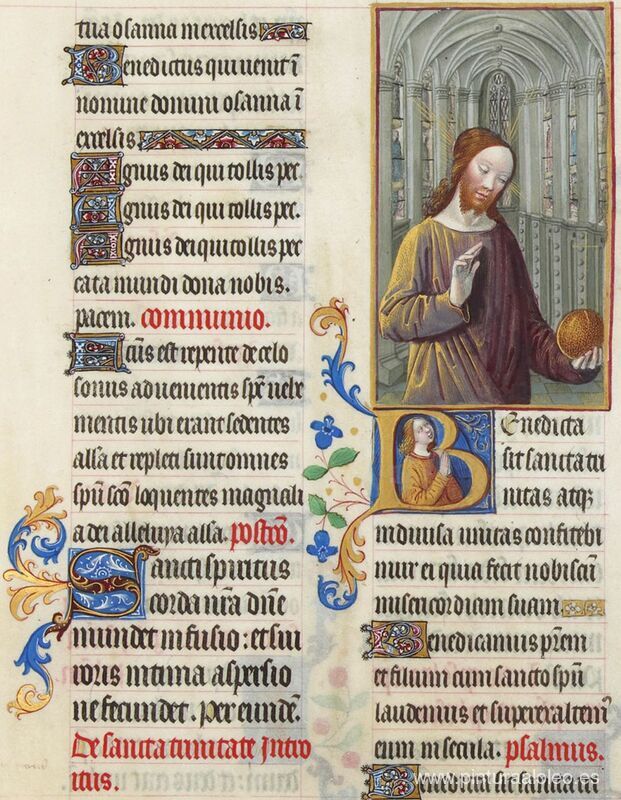 tua osanna in excelsis
Benedictus qui uenit ī
nomine domini osanna ī
excelsis.
Agnus dei qui tollis pec.
Agnus dei qui tollis pec.
Agnus dei qui tollis pec
cata mundi dona nobis.
pacem. communio.
Factus est repente de celo
sonus aduenientis spūs uehe
mentis ubi erant sedentes
alla et repleti sunt omnes
spū scō loquentes magnali
a dei alleluya alla. postcō.
Sancti spiritus
corda nr̄a dn̄e
mundet infusio: et sui
roris intima aspersio
ne fecundet. Per eundē.
De sancta trinitate Intro
itus.
Benedicta
sit sancta tri
nitas atq;
indiuisa unitas confitebi
mur ei quia fecit nobiscū
misericordiam suam.
Benedicamus p̄rem
et filium cum sancto spū
laudemus et superexaltem⁹
eum in secula. psalmus.
Benedicta sit sancta tri
www.pinturaaloleo.es